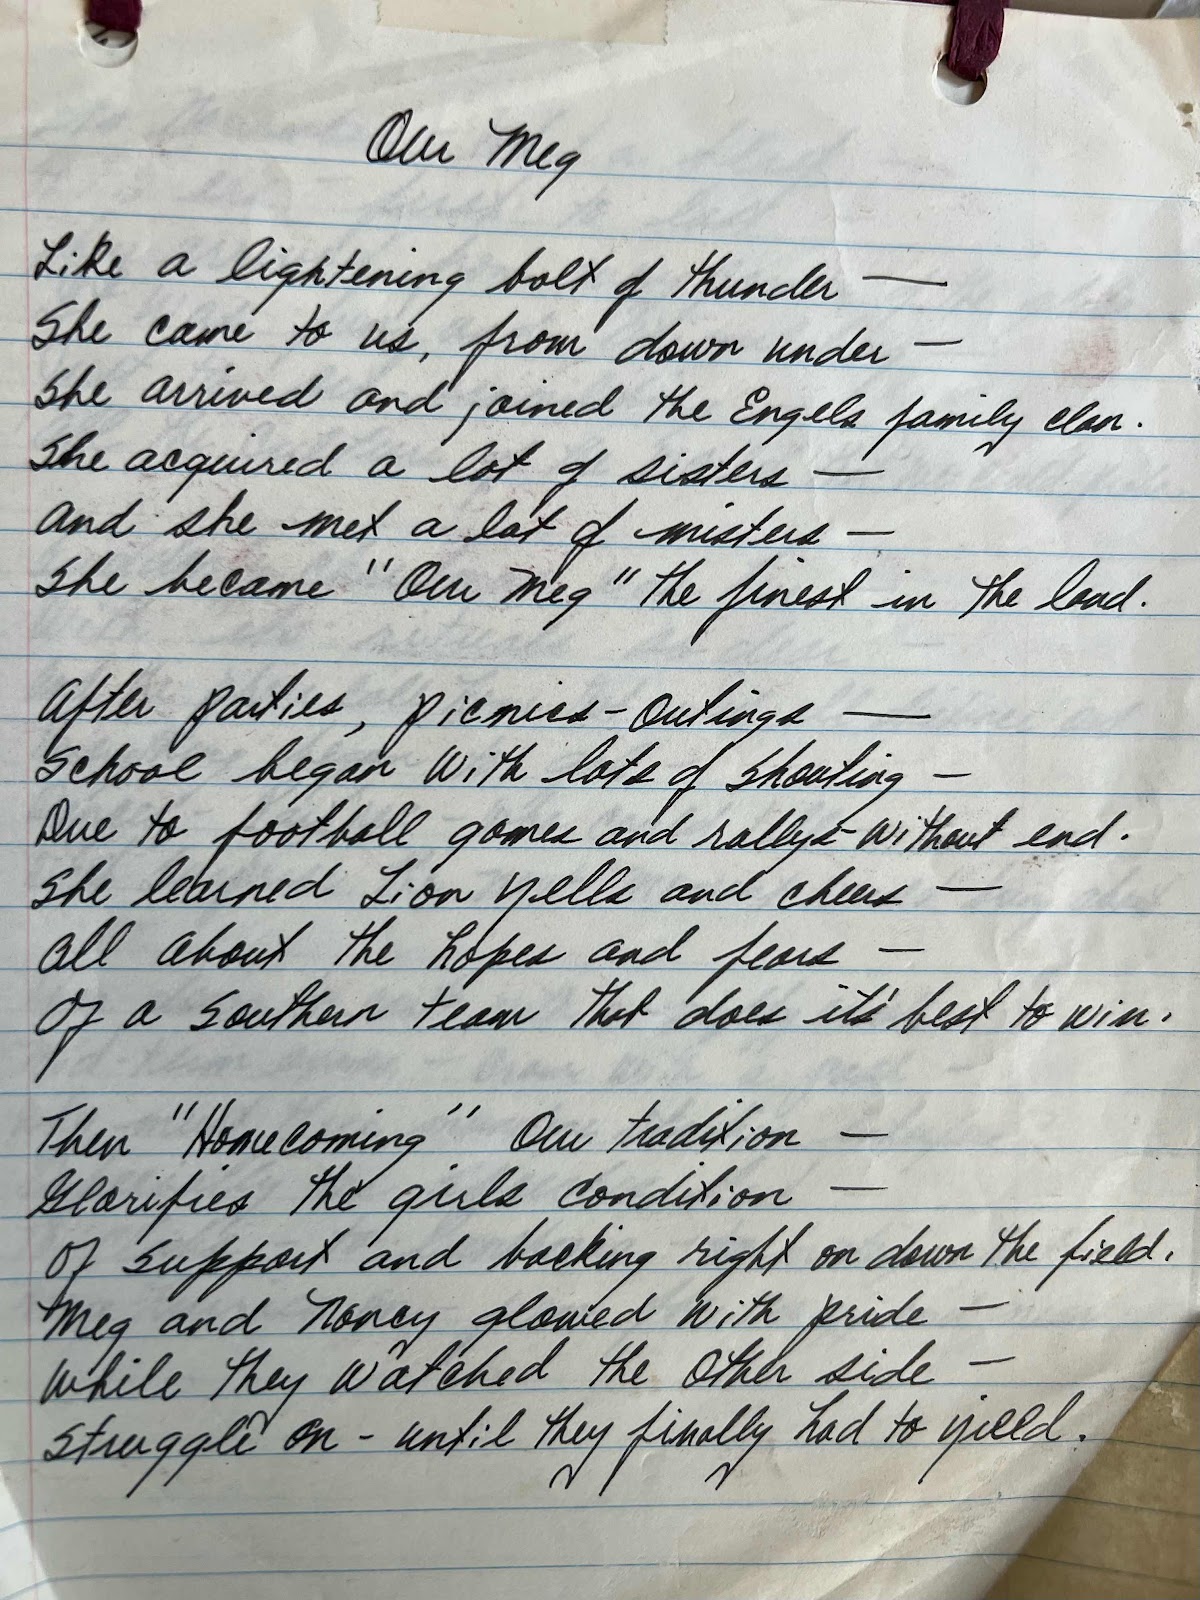 Our Meg
Like a lightening bolt of thunder —
She came to us, from down under —
She arrived and joined the Engels family clan.
She acquired a lot of sisters —
and she met a lot of misters —
She became "Our Meg" the finest in the land.
After parties, picnics - Outings —
School began with lots of shouting —
Due to football games and rallys - without end.
She learned Lion yells and cheers —
all about the hopes and fears —
Of a Southern team that does its' best to win.
Then "Homecoming" Our tradition —
Glorifies the girls condition —
Of support and backing right on down the field.
Meg and Nancy glowed with pride —
while they watched the other side —
Struggle on - until they finally had to yield.